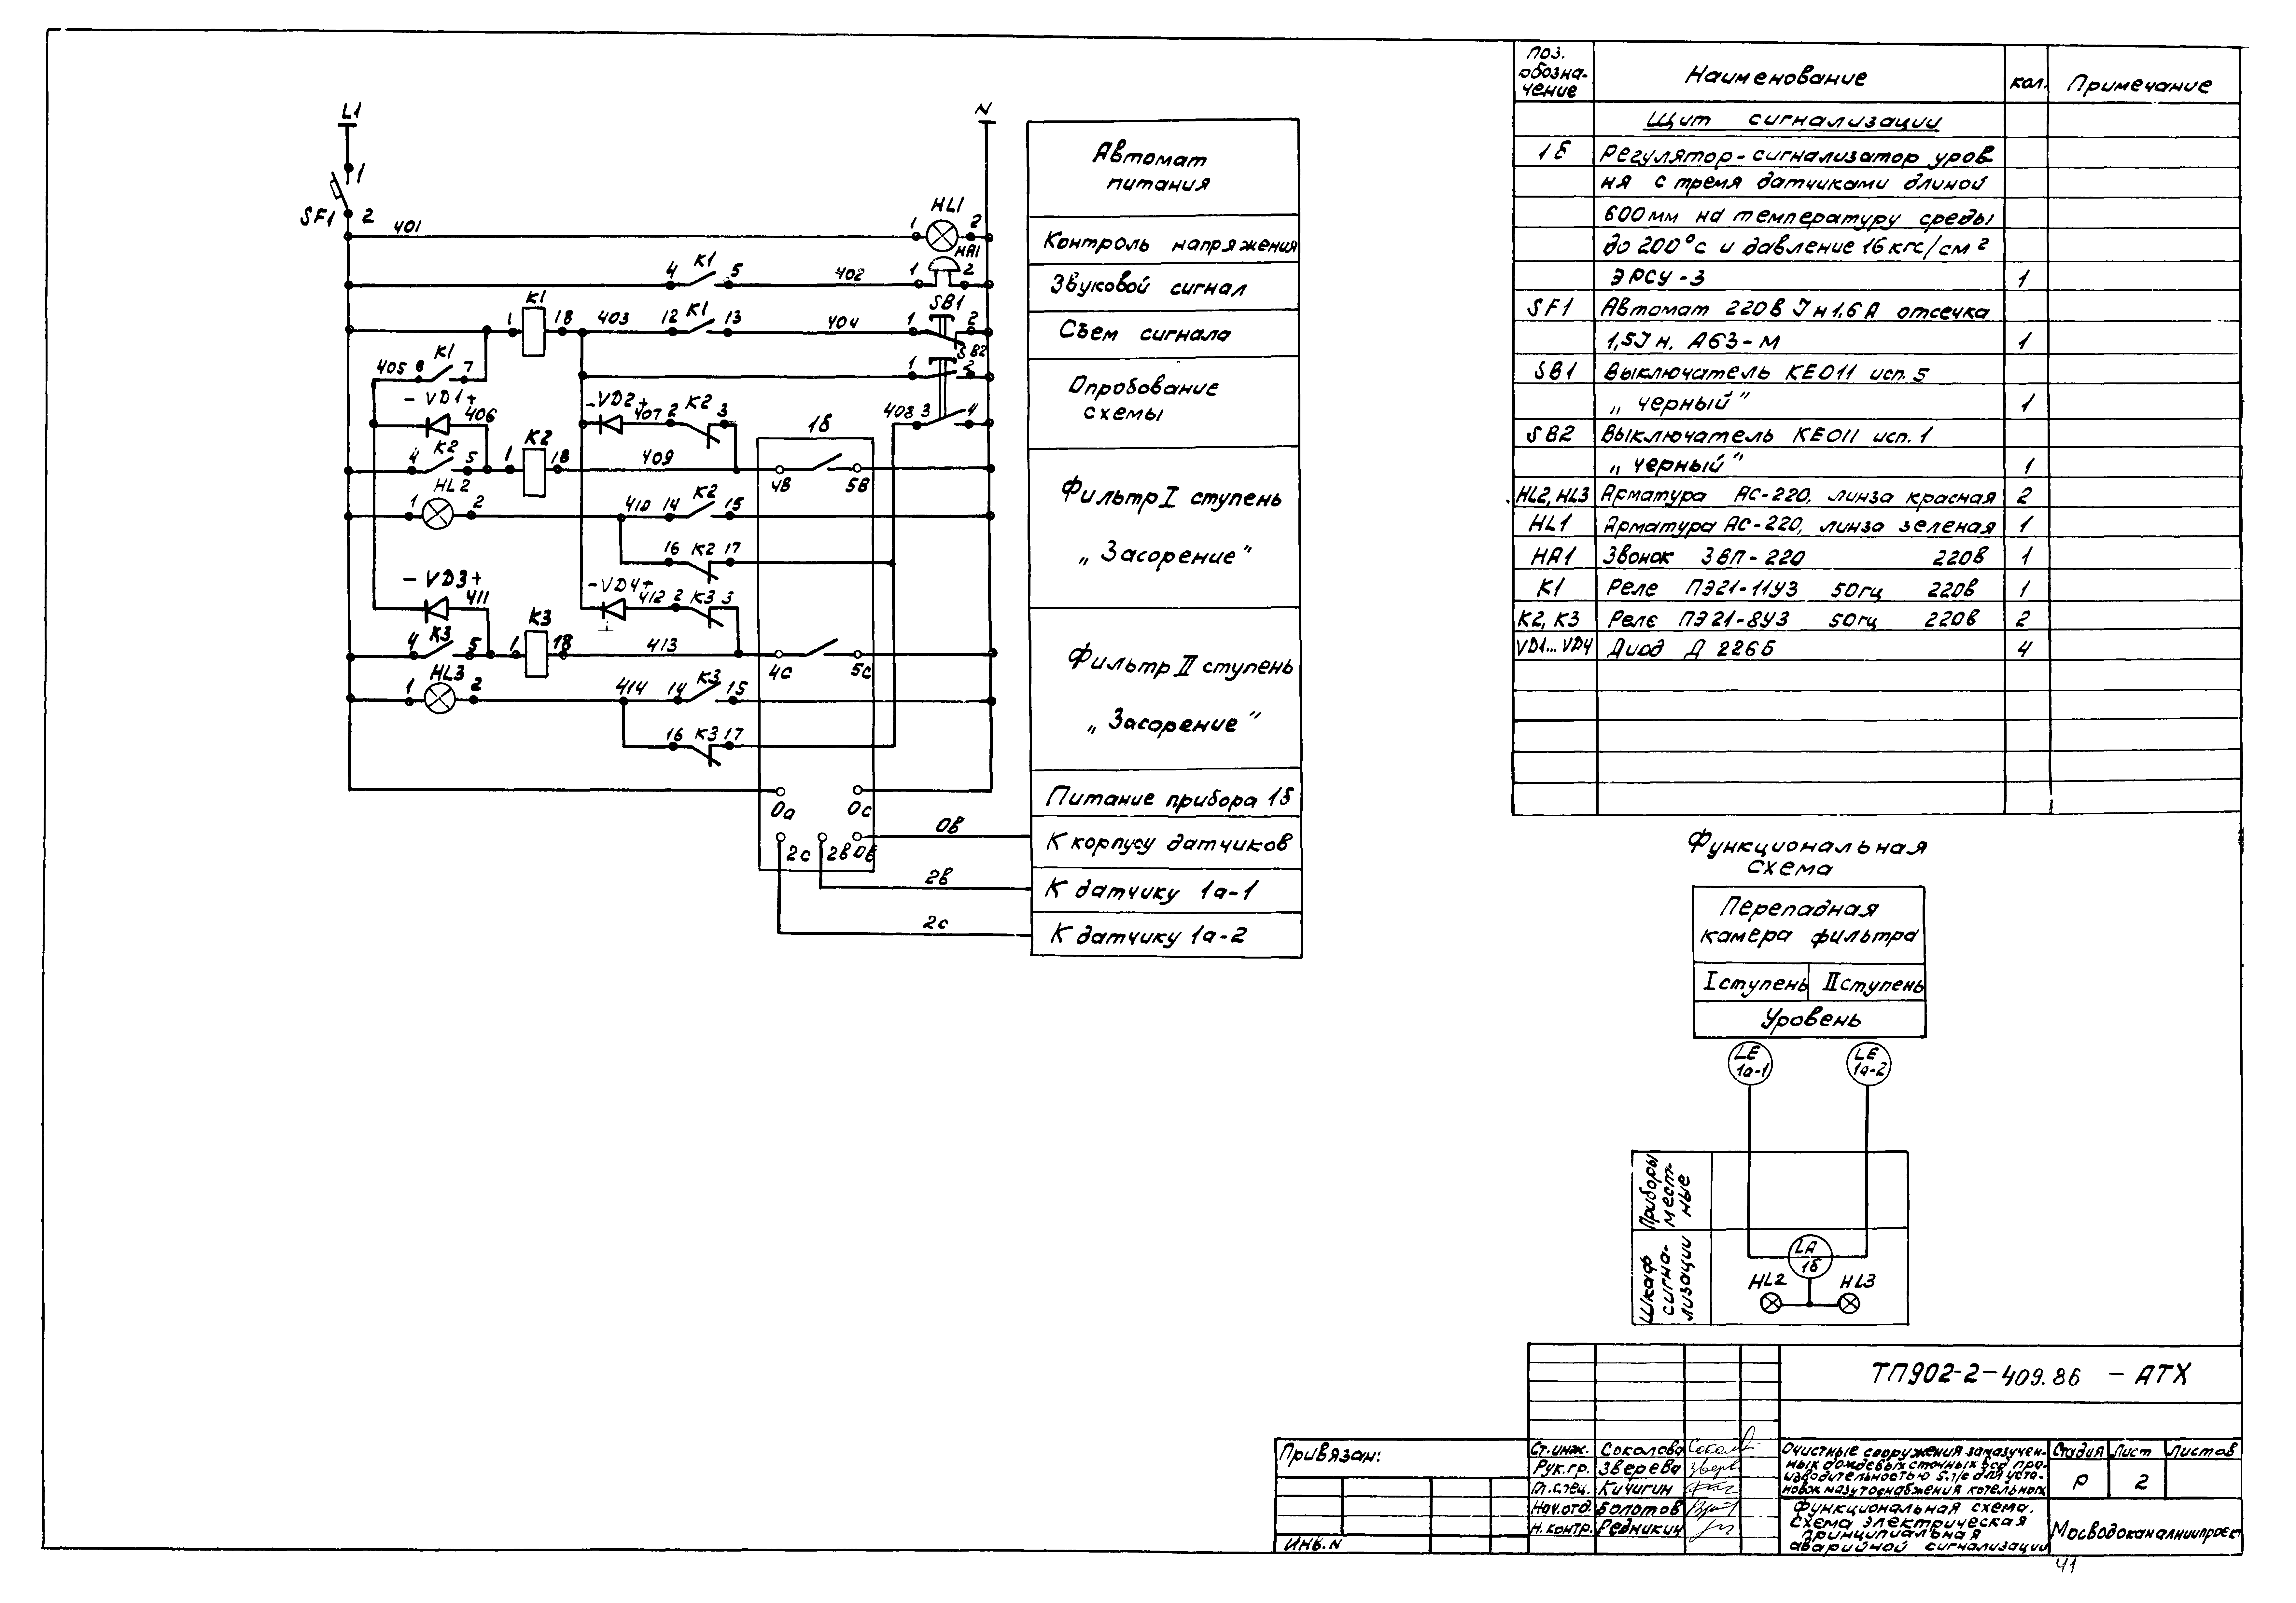 L1
N
1
SF1 2
401
1 HL1 2
4 K1 5
402
1 HA1 2
1 K1 18
403
12 K1 13
404
1 SB1 2
405 6 K1 7
1 SB2 2
- VD1 +
406
-VD2+
407 2 K2 3
408 3 4
4 K2 5
1 K2 18
409
1б
4в 5в
1 HL2 2
410 14 K2 15
16 K2 17
- VD3 +
411
-VD4+
412 2 K3 3
4 K3 5
1 K3 18
413
4с 5с
1 HL3 2
414 14 K3 15
16 K3 17
0а 0с
2с 2в 0в
0в
2в
2с
Автомат
питания
Контроль напряжения
Звуковой сигнал
Съем сигнала
Опробование
схемы
Фильтр I ступень
„Засорение"
Фильтр II ступень
„Засорение"
Питание прибора 1б
К корпусу датчиков
К датчику 1а-1
К датчику 1а-2
поз.
обозна-
чение
Наименование
кол.
Примечание
Щит сигнализации
1б Регулятор-сигнализатор уров
ня с тремя датчиками длиной
600мм на температуру среды
до 200°с и давление 16кгс/см²
ЭРСУ-3 1
SF1 Автомат 220в Iн 1,6А отсечка
1,5Iн. А63-М 1
SB1 Выключатель КЕ011 исп. 5
„черный" 1
SB2 Выключатель КЕ011 исп. 1
„черный" 1
HL2, HL3 Арматура АС-220, линза красная 2
HL1 Арматура АС-220, линза зеленая 1
HA1 Звонок ЗВП-220 220в 1
K1 Реле ПЭ21-11У3 50гц 220в 1
K2, K3 Реле ПЭ21-8У3 50гц 220в 2
VD1...VD4 Диод Д 226Б 4
Функциональная
схема
Перепадная
камера фильтра
I ступень II ступень
Уровень
LE
1а-1
LE
1а-2
Приборы
мест-
ные
Шкаф
сигна-
лизации
LA
1б
HL2 HL3
ТП902-2-409.86 - АТХ
Привязан:
Инв.N
Ст.инж. Соколова
Рук.гр. Зверева
Гл.спец. Кичигин
Нач.отд. Болотов
Н.контр. Редникин
Очистные сооружения замазучен-
ных дождевых сточных вод про-
изводительностью 5л/с для уста-
новок мазутоснабжения котельных
Стадия Лист Листов
Р 2
Функциональная схема.
Схема электрическая
принципиальная
аварийной сигнализации
Мосводоканалниипроект
41